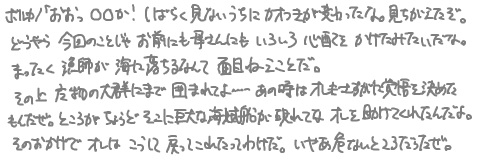 ボルカノ「おおっ ○○か！しばらく見ないうちにかおつきが変わったな。見ちがえたぞ。
どうやら今回のことじゃお前にも母さんにもいろいろ心配をかけたみたいだな。
まったく漁師が海に落ちるなんて面目ねえことだ。
その上 魔物の大群にまで囲まれてよ… あの時はオレも士すがに覚悟を決めた
もんだぜ。ところがちょうどそこに巨大な海賊船が現れてな オレを助けてくれたんだよ。
そのおかげでオレはこうして戻ってこれたってわけだ。いやあ危ないところだったぜ。